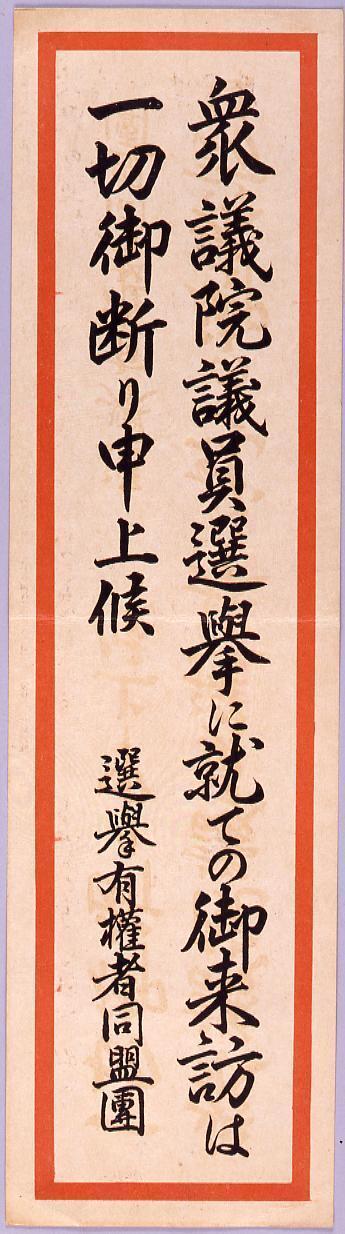 衆議院議員選擧に就ての御来訪は
一切御断り申上候
選擧有權者同盟團